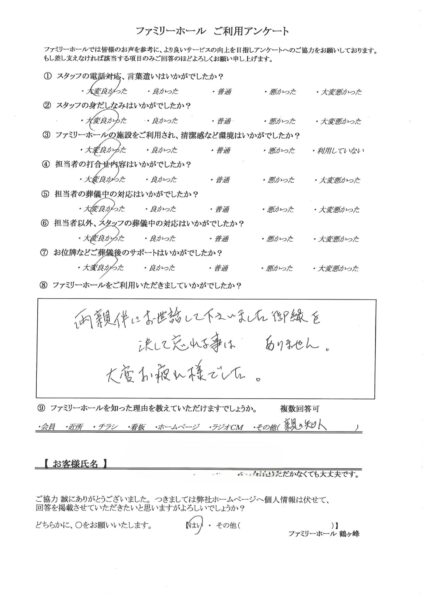 ファミリーホール　ご利用アンケート
ファミリーホールでは皆様のお声を参考に、より良いサービスの向上を目指しアンケートへのご協力をお願いしております。
もし差し支えなければ該当する項目のみご回答のほどよろしくお願い申し上げます。
① スタッフの電話対応、言葉遣いはいかがでしたか？
・大変良かった　・良かった　・普通　・悪かった　・大変悪かった
② スタッフの身だしなみはいかがでしたか？
・大変良かった　・良かった　・普通　・悪かった　・大変悪かった
③ ファミリーホールの施設をご利用され、清潔感など環境はいかがでしたか？
・大変良かった　・良かった　・普通　・悪かった　・利用していない
④ 担当者の打合せ内容はいかがでしたか？
・大変良かった　・良かった　・普通　・悪かった　・大変悪かった
⑤ 担当者の葬儀中の対応はいかがでしたか？
・大変良かった　・良かった　・普通　・悪かった　・大変悪かった
⑥ 担当者以外、スタッフの葬儀中の対応はいかがでしたか？
・大変良かった　・良かった　・普通　・悪かった　・大変悪かった
⑦ お位牌などご葬儀後のサポートはいかがでしたか？
・大変良かった　・良かった　・普通　・悪かった　・大変悪かった
⑧ ファミリーホールをご利用いただきましていかがでしたか？
両親伴にお世話して下さいました御縁を
決して忘れる事は　ありません。
大変お疲れ様でした。
⑨ ファミリーホールを知った理由を教えていただけますでしょうか。　複数回答可
・会員　・近所　・チラシ　・看板　・ホームページ　・ラジオCM　・その他(　　)
【 お客様氏名 】
ただかなくても大丈夫です。
ご協力 誠にありがとうございました。つきましては弊社ホームページへ個人情報は伏せて、
回答を掲載させていただきたいと思いますがよろしいでしょうか？
どちらかに、〇をお願いいたします。　【はい ・ その他(　　)】
ファミリーホール 鶴ヶ峰